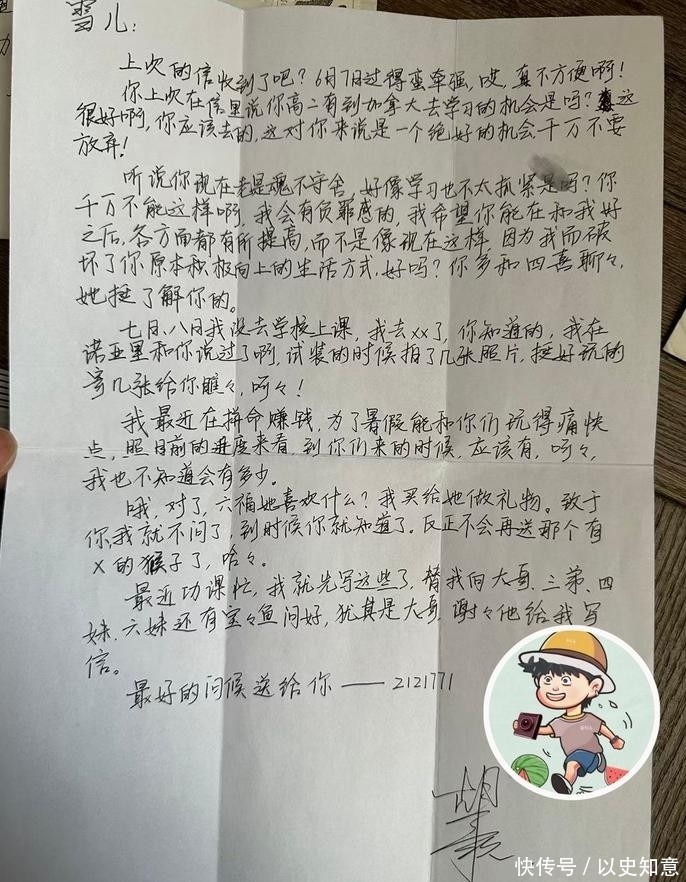 雪儿：
上次的信收到了吧？6月7日过得蛮牵强，哎，真不方便啊！
你上次在信里说你高二有到加拿大去学习的机会是吗？这
很好啊，你应该去的，这对你来说是一个绝好的机会千万不要
放弃！
听说你现在老是魂不守舍，好像学习也不太抓紧是吗？你
千万不能这样啊，我会有负罪感的，我希望你能在和我好
之后，各方面都有所提高，而不是像现在这样，因为我而破
坏了你原本积极向上的生活方式，好吗？你多和四喜聊々，
她挺了解你的。
七日、八日我没去学校上课，我去xx了，你知道的，我在
诺亚里和你说过了啊，试装的时候拍了几张照片，挺好玩的
寄几张给你瞧々，呵々！
我最近在拼命赚钱，为了暑假能和你们玩得痛快
点，照目前的进度来看，到你们来的时候，应该有，呵々，
我也不知道会有多少。
哦，对了，六福她喜欢什么？我买给她做礼物。致于
你，我就不问了，到时候你就知道了。反正不会再送那个有
X的猴子了，哈々。
最近功课忙，我就先写这些了，替我向大哥、三弟、四
妹、六妹还有宝々鱼问好，犹其是大哥，谢々他给我写
信。
最好的问候送给你——2121771
胡
快传号／以史知意